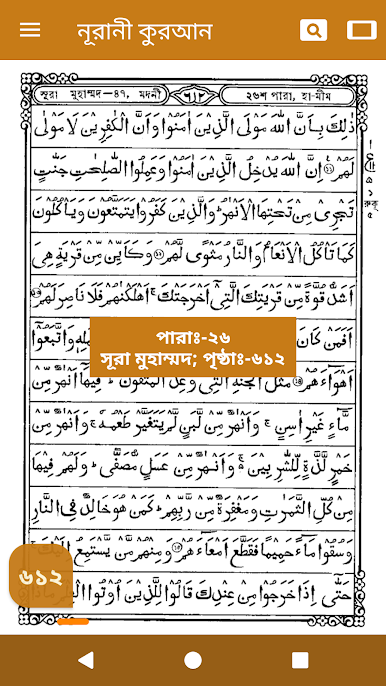 নূরানী কুরআন
সুরা মুহাম্মদ—৪৭, মদনী
৬১২
২৬শ পারা, হা-মীম
ذٰلِكَ بِاَنَّ اللّٰهَ مَوْلَى الَّذِيْنَ اٰمَنُوْا وَاَنَّ الْكٰفِرِيْنَ لَا مَوْلٰى
لَهُمْ ۝ اِنَّ اللّٰهَ يُدْخِلُ الَّذِيْنَ اٰمَنُوْا وَعَمِلُوا الصّٰلِحٰتِ جَنّٰتٍ
تَجْرِىْ مِنْ تَحْتِهَا الْاَنْهٰرُ وَالَّذِيْنَ كَفَرُوْا يَتَمَتَّعُوْنَ وَيَاْكُلُوْنَ
كَمَا تَاْكُلُ الْاَنْعَامُ وَالنَّارُ مَثْوًى لَّهُمْ ۝ وَكَاَيِّنْ مِّنْ قَرْيَةٍ هِىَ
اَشَدُّ قُوَّةً مِّنْ قَرْيَتِكَ الَّتِىْ اَخْرَجَتْكَ اَهْلَكْنٰهُمْ فَلَا نَاصِرَ لَهُمْ
اَفَمَنْ كَانَ وَاتَّبَعُوْا
পারাঃ-২৬
সূরা মুহাম্মদ; পৃষ্ঠাঃ-৬১২
اَهْوَآءَهُمْ ۝ مَثَلُ الْجَنَّةِ الَّتِىْ وُعِدَ الْمُتَّقُوْنَ فِيْهَا اَنْهٰرٌ مِّنْ
مَّآءٍ غَيْرِ اٰسِنٍ وَاَنْهٰرٌ مِّنْ لَّبَنٍ لَّمْ يَتَغَيَّرْ طَعْمُهٗ وَاَنْهٰرٌ مِّنْ
خَمْرٍ لَّذَّةٍ لِّلشّٰرِبِيْنَ وَاَنْهٰرٌ مِّنْ عَسَلٍ مُّصَفًّى وَلَهُمْ فِيْهَا
مِنْ كُلِّ الثَّمَرٰتِ وَمَغْفِرَةٌ مِّنْ رَّبِّهِمْ كَمَنْ هُوَ خَالِدٌ فِى النَّارِ
وَسُقُوْا مَآءً حَمِيْمًا فَقَطَّعَ اَمْعَآءَهُمْ ۝ وَمِنْهُمْ مَّنْ يَّسْتَمِعُ اِلَيْكَ
حَتّٰى اِذَا خَرَجُوْا مِنْ عِنْدِكَ قَالُوْا لِلَّذِيْنَ اُوْتُوا الْعِلْمَ مَاذَا
৬১২